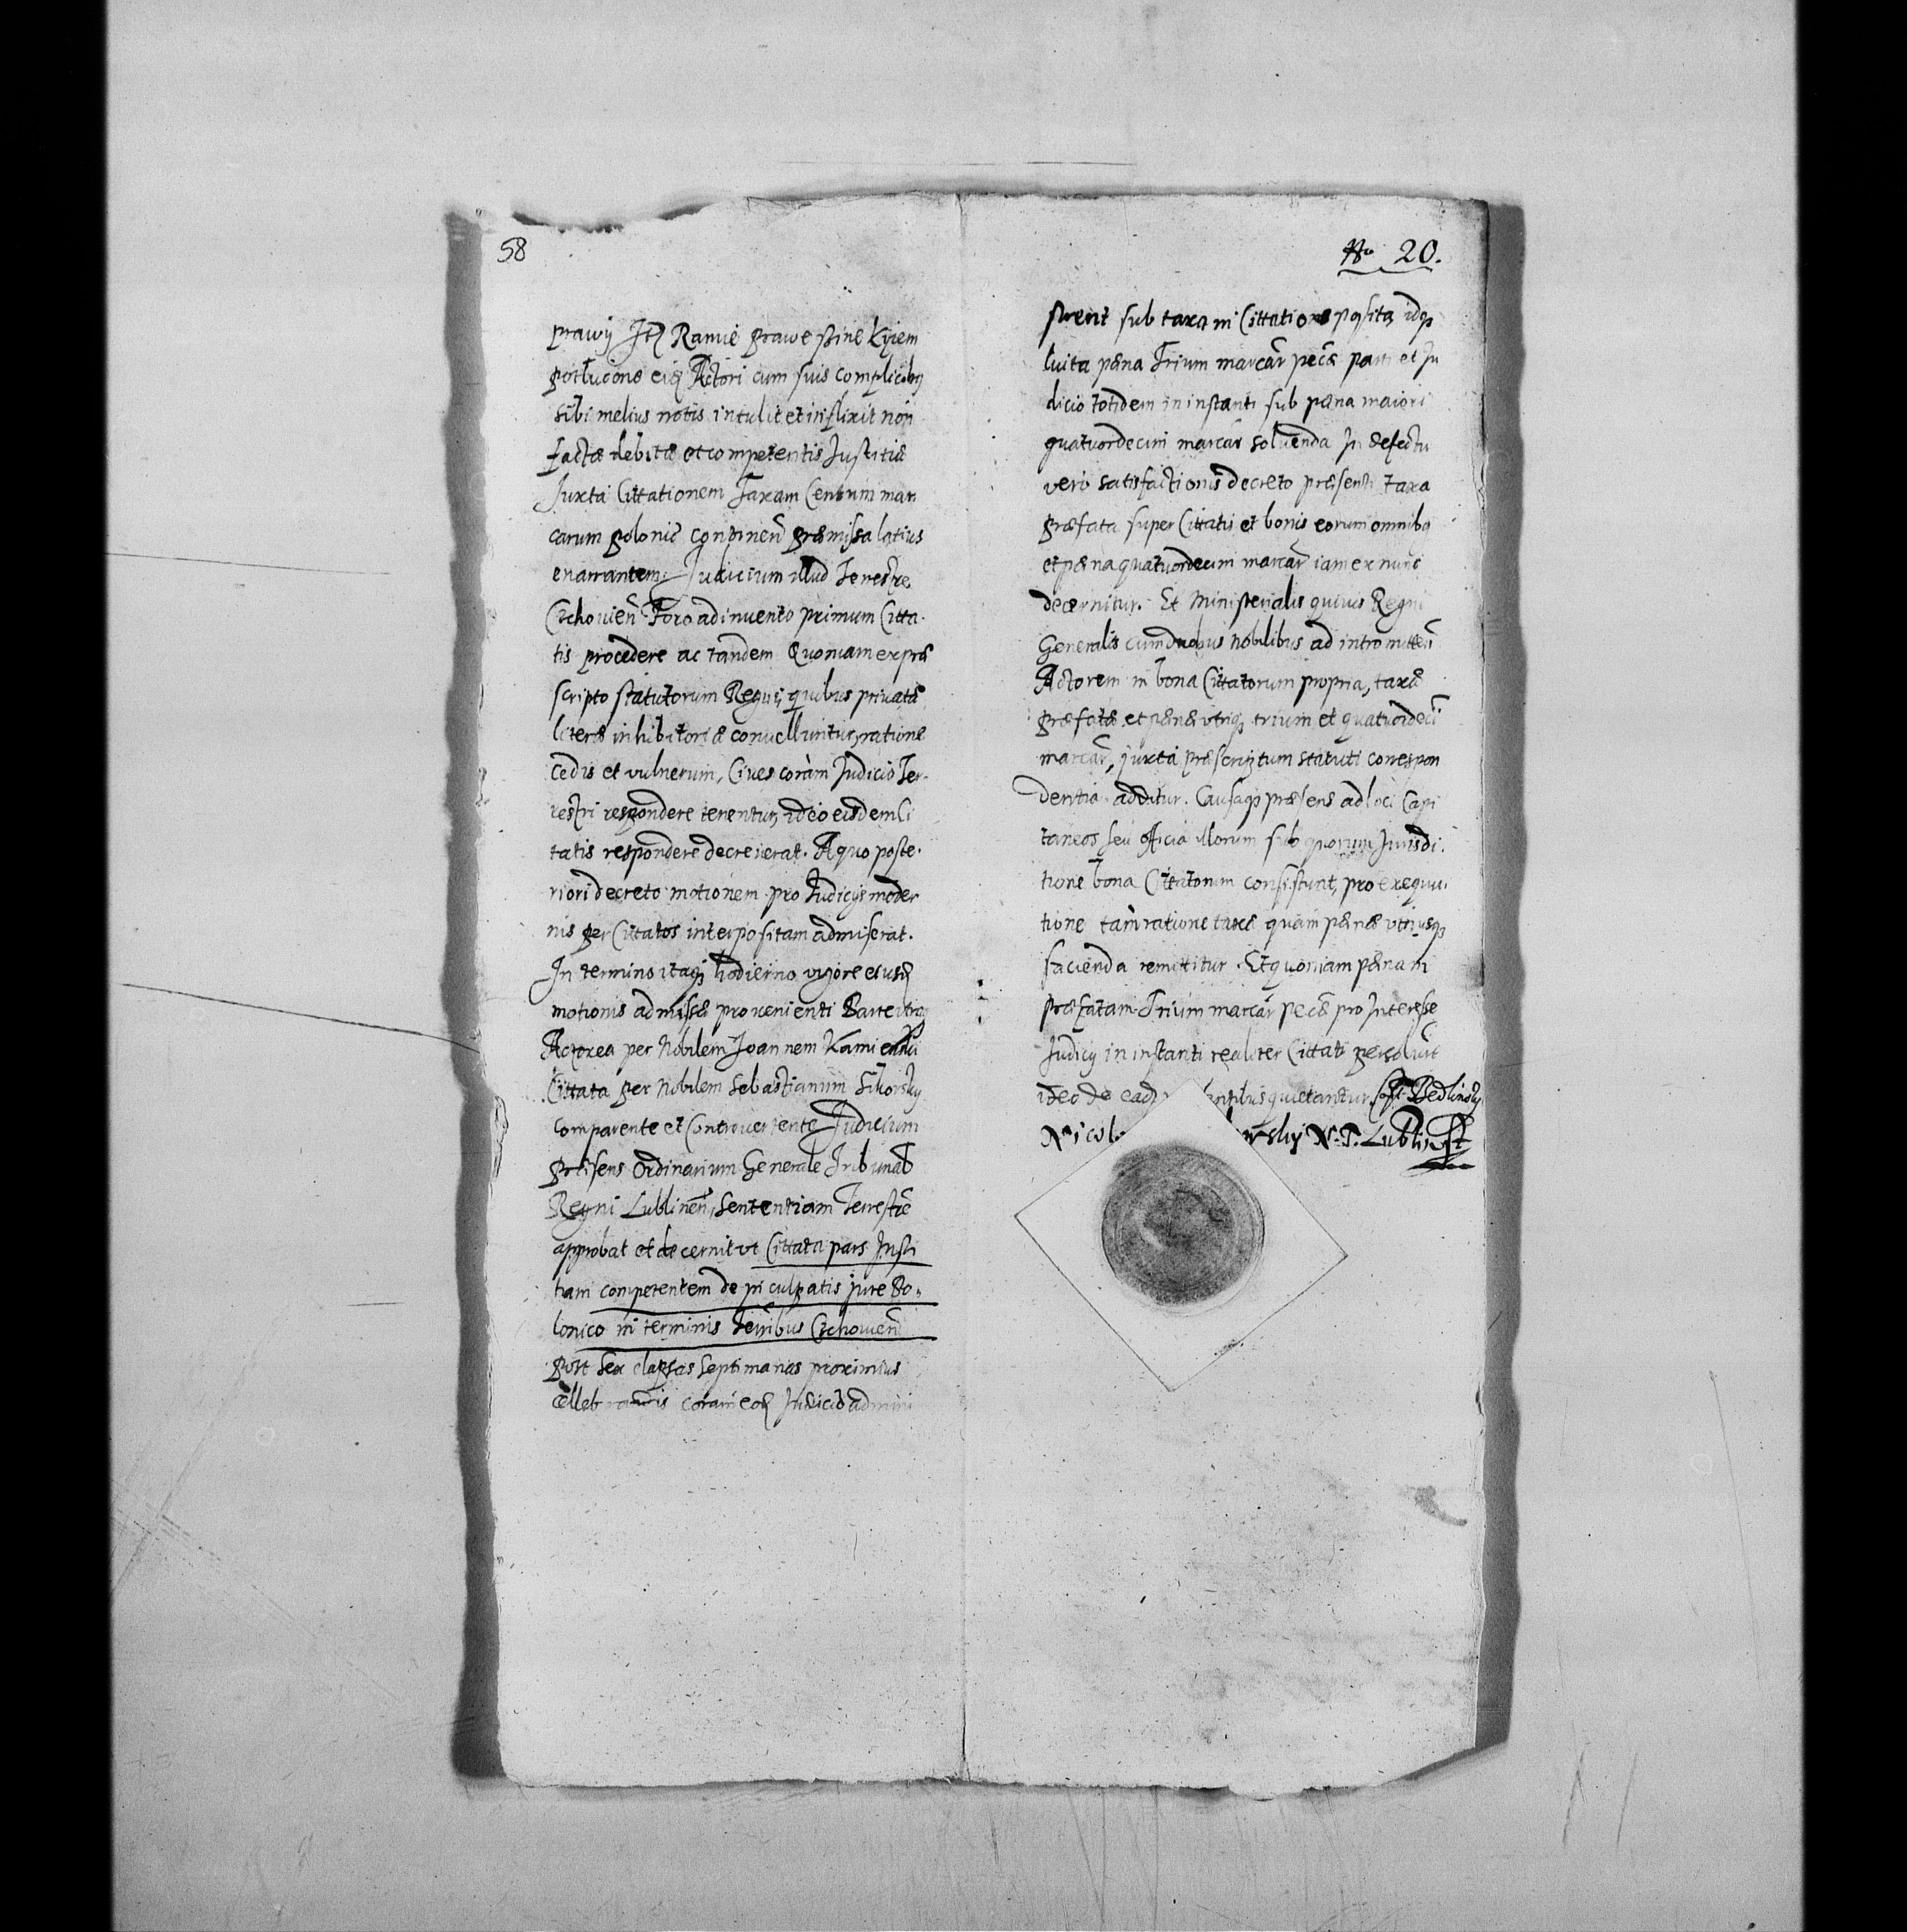 58
prawij Itē Ramie prawe sine kijem
potłucone eidē Actori cum suis complicibus
sibi melius notis intulit et inflixit non
factæ debitæ et competentis Justitiæ
Juxta Cittationem Taxam Centum mar
carum polonic continen̄ præmissa latius
enarrantem. Judicium illud Terrestre
Czchouien̄ Foro adinuento primum Citta
tis procedere ac tandem Quoniam ex præ
scripto statutorum Regni, quibus priuatæ
literæ inhibitoriæ conuelluntur, ratione
cedis et vulnerum, Ciues coràm Judicio Ter-
restri respondere tenentur, ideo eisdem Ci
tatis respondere decreuerat. A quo poste-
riori decreto motionem pro Judicijs moder
nis per Cittatos interpositam admiserat.
In termino itaq hodierno vigore eiusd
motionis admissæ prouenienti Parte utraq
Actorea per Nobilem Joannem Kamienski
Cittata per Nobilem Sebastianum Sikorsky
comparente et Controuertente Judicium
præsens Ordinarium Generale Tribunal
Regni Lublinen̄, Sententiam Terrestrē
approbat et decernit vt Cittata pars Justi
tiam competentem de inculpatis jure Po-
lonico in terminis Terribus Czchouien̄
post Sex elapsas Septimanas proximius
cællebrandis coram eod Judicio admini
No 20.
strent sub taxa in Cittatione posita, idq
luita pæna Trium marcar̄ pecæ parti et Ju
dicio totidem in instanti sub pæna maiori
quatuordecim marcar̄ soluenda In defectu
vero satisfactionis decreto præsenti taxa
præfata super Cittatis et bonis eorum omnibo
et pæna quatuordecim marcar̄ iam ex nunc
decernitur. Et Ministerialis quiuis Regni
Generalis cum duobus Nobilibus ad intromitten̄
Actorem in bona Cittatorum propria, taxæ
præfatæ et pænæ vtriq trium et quatuordeci
marcar̄, juxta præscriptum statuti correspon
dentia additur. Causaq præsens ad loci Capi
taneos seu officia illorum sub quorum Jurisdi
tione bona Cittatorum consistunt, pro exequu
tione tam ratione taxæ quam pænæ vtriusq
facienda remittitur. Et quoniam pænam
præfatam Trium marcar̄ pecæ pro Interesse
Judicij in instanti realiter Cittati persoluit
ideo de ead quietantur
N. T. Lublin